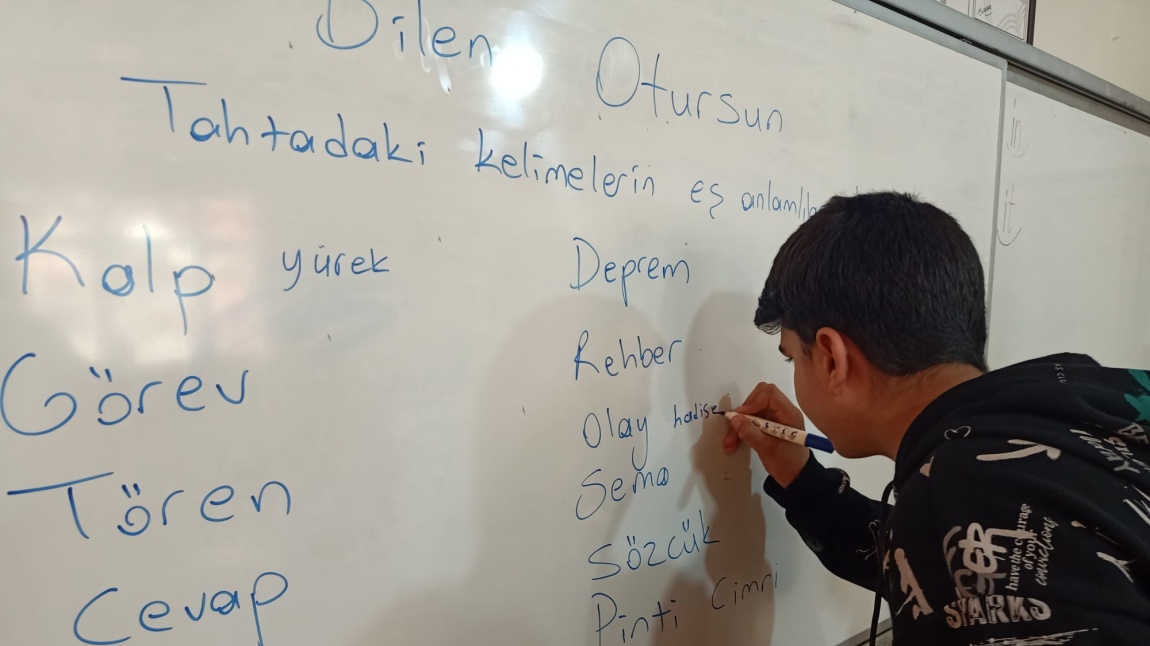 Dilen Otursun
Tahtadaki kelimelerin eş anlamlıla
Kalp yürek
Görev
Tören
Cevap
Deprem
Rehber
Olay hadise
Sema
Sözcük
Pinti Cimri
in
it
have the courage
of your
convictions
STARKS